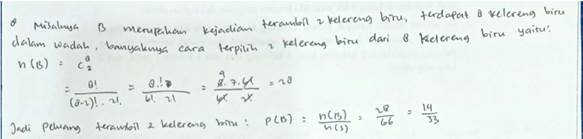 • Misalnya B merupakan kejadian terambil 2 kelereng biru, terdapat 8 kelereng biru
dalam wadah, banyaknya cara terpilih 2 kelereng biru dari 8 kelereng biru yaitu:
n(B) = C⁸₂
= 8! / (8-2)! . 2! = 8! / 6! 2! = 8 . 7 . 6! / 6! 2! = 28
Jadi Peluang terambil 2 kelereng biru : P(B) = n(B) / n(S) = 28 / 66 = 14 / 33